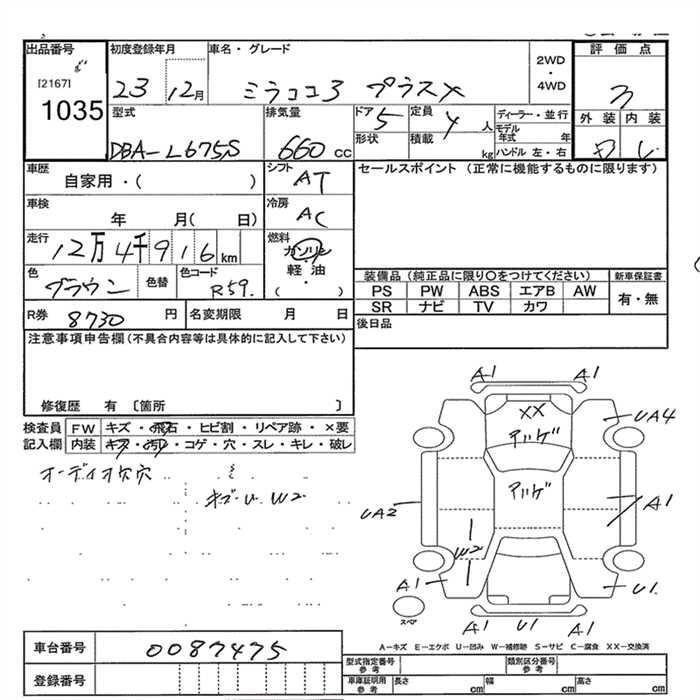 出品番号
[2167]
1035
初度登録年月
23 12月
車名・グレード
ミラココア プラスX
2WD
・
4WD
評価点
3
外装 内装
型式
DBA-L675S
排気量
660 cc
ドア
5
定員
4 人
形状
積載
kg
ディーラー・並行
モデル
年式 年
ハンドル 左・右
車歴
自家用・( )
シフト
AT
セールスポイント (正常に機能するものに限ります)
車検
年 月( 日)
冷房
AC
走行
12万4千916 km
燃料
ガソリン
軽油
・
( )
色
ブラウン
色替
色コード
R59.
装備品 (純品に限り○をつけてください)
PS PW ABS エアB AW
SR ナビ TV カワ
新車保証書
有・無
R券
8730 円
名変期限 月 日
後日品
注意事項申告欄 (不具合内容等は具体的に記入して下さい)
修復歴 有 〔箇所 〕
検査員
記入欄
FW キズ・飛石・ヒビ割・リペア跡・×要
内装 キズ・汚レ・コゲ・穴・スレ・キレ・破レ
オーディオ欠穴
A1 A1
XX
UA4
UA2
A1
W2
A1
U1
スペア
A1 U1 A1
A―キズ E―エクボ U―凹み W―補修跡 S―サビ C―腐食 XX―交換済
車台番号
0087475
登録番号
型式指定番号
参考
類別区分番号
参考
車庫証明用
参考
長さ cm 幅 cm 高さ cm